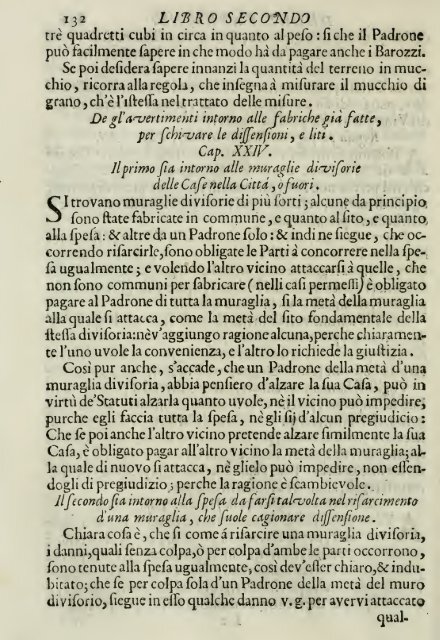 132 LIBRO SECONDO
trè quadretti cubi in circa in quanto al peso : sì che il Padrone
può facilmente sapere in che modo hà da pagare anche i Barozzi.
Se poi desidera sapere innanzi la quantità del terreno in muc-
chio, ricorra alla regola, che insegna à misurare il mucchio di
grano, ch'è l'istessa nel trattato delle misure.
De gl'avertimenti intorno alle fabriche già fatte,
per schivare le dissensioni, e liti.
Cap. XXIV.
Il primo sia intorno alle muraglie divisorie
delle Case nella Città, o fuori.
SI trovano muraglie divisorie di più sorti; alcune da principio
sono state fabricate in commune, e quanto al sito, e quanto
alla spesa : & altre da un Padrone solo : & indi ne siegue, che oc-
correndo risarcirle, sono obligate le Parti à concorrere nella spe-
sa ugualmente; e volendo l'altro vicino attaccarsi à quelle, che
non sono communi per fabricare (nelli casi permessi) è obligato
pagare al Padrone di tutta la muraglia, sì la metà della muraglia
alla quale si attacca, come la metà del sito fondamentale della
stessa divisoria: nè v'aggiungo ragione alcuna, perche chiaramen-
te l'uno vuole la convenienza, e l'altro lo richiede la giustizia.
Così pur anche, s'accade, che un Padrone della metà d'una
muraglia divisoria, abbia pensiero d'alzare la sua Casa, può in
virtù de'Statuti alzarla quanto uvole, nè il vicino può impedire,
purche egli faccia tutta la spesa, nè gli sij d'alcun pregiudicio:
Che se poi anche l'altro vicino pretende alzare similmente la sua
Casa, è obligato pagar all'altro vicino la metà della muraglia; al-
la quale di nuovo si attacca, nè glielo può impedire, non essen-
dogli di pregiudizio; perche la ragione è scambievole.
Il secondo sia intorno alla spesa da farsi talvolta nel risarcimento
d'una muraglia, che suole cagionare dissensione.
Chiara cosa è, che sì come à risarcire una muraglia divisoria,
i danni, quali senza colpa, ò per colpa d'ambe le parti occorrono,
sono tenute alla spesa ugualmente, così dev'esser chiaro, & indu-
bitato; che se per colpa sola d'un Padrone della metà del muro
divisorio, siegue in esso qualche danno v. g. per avervi attaccato
qual-